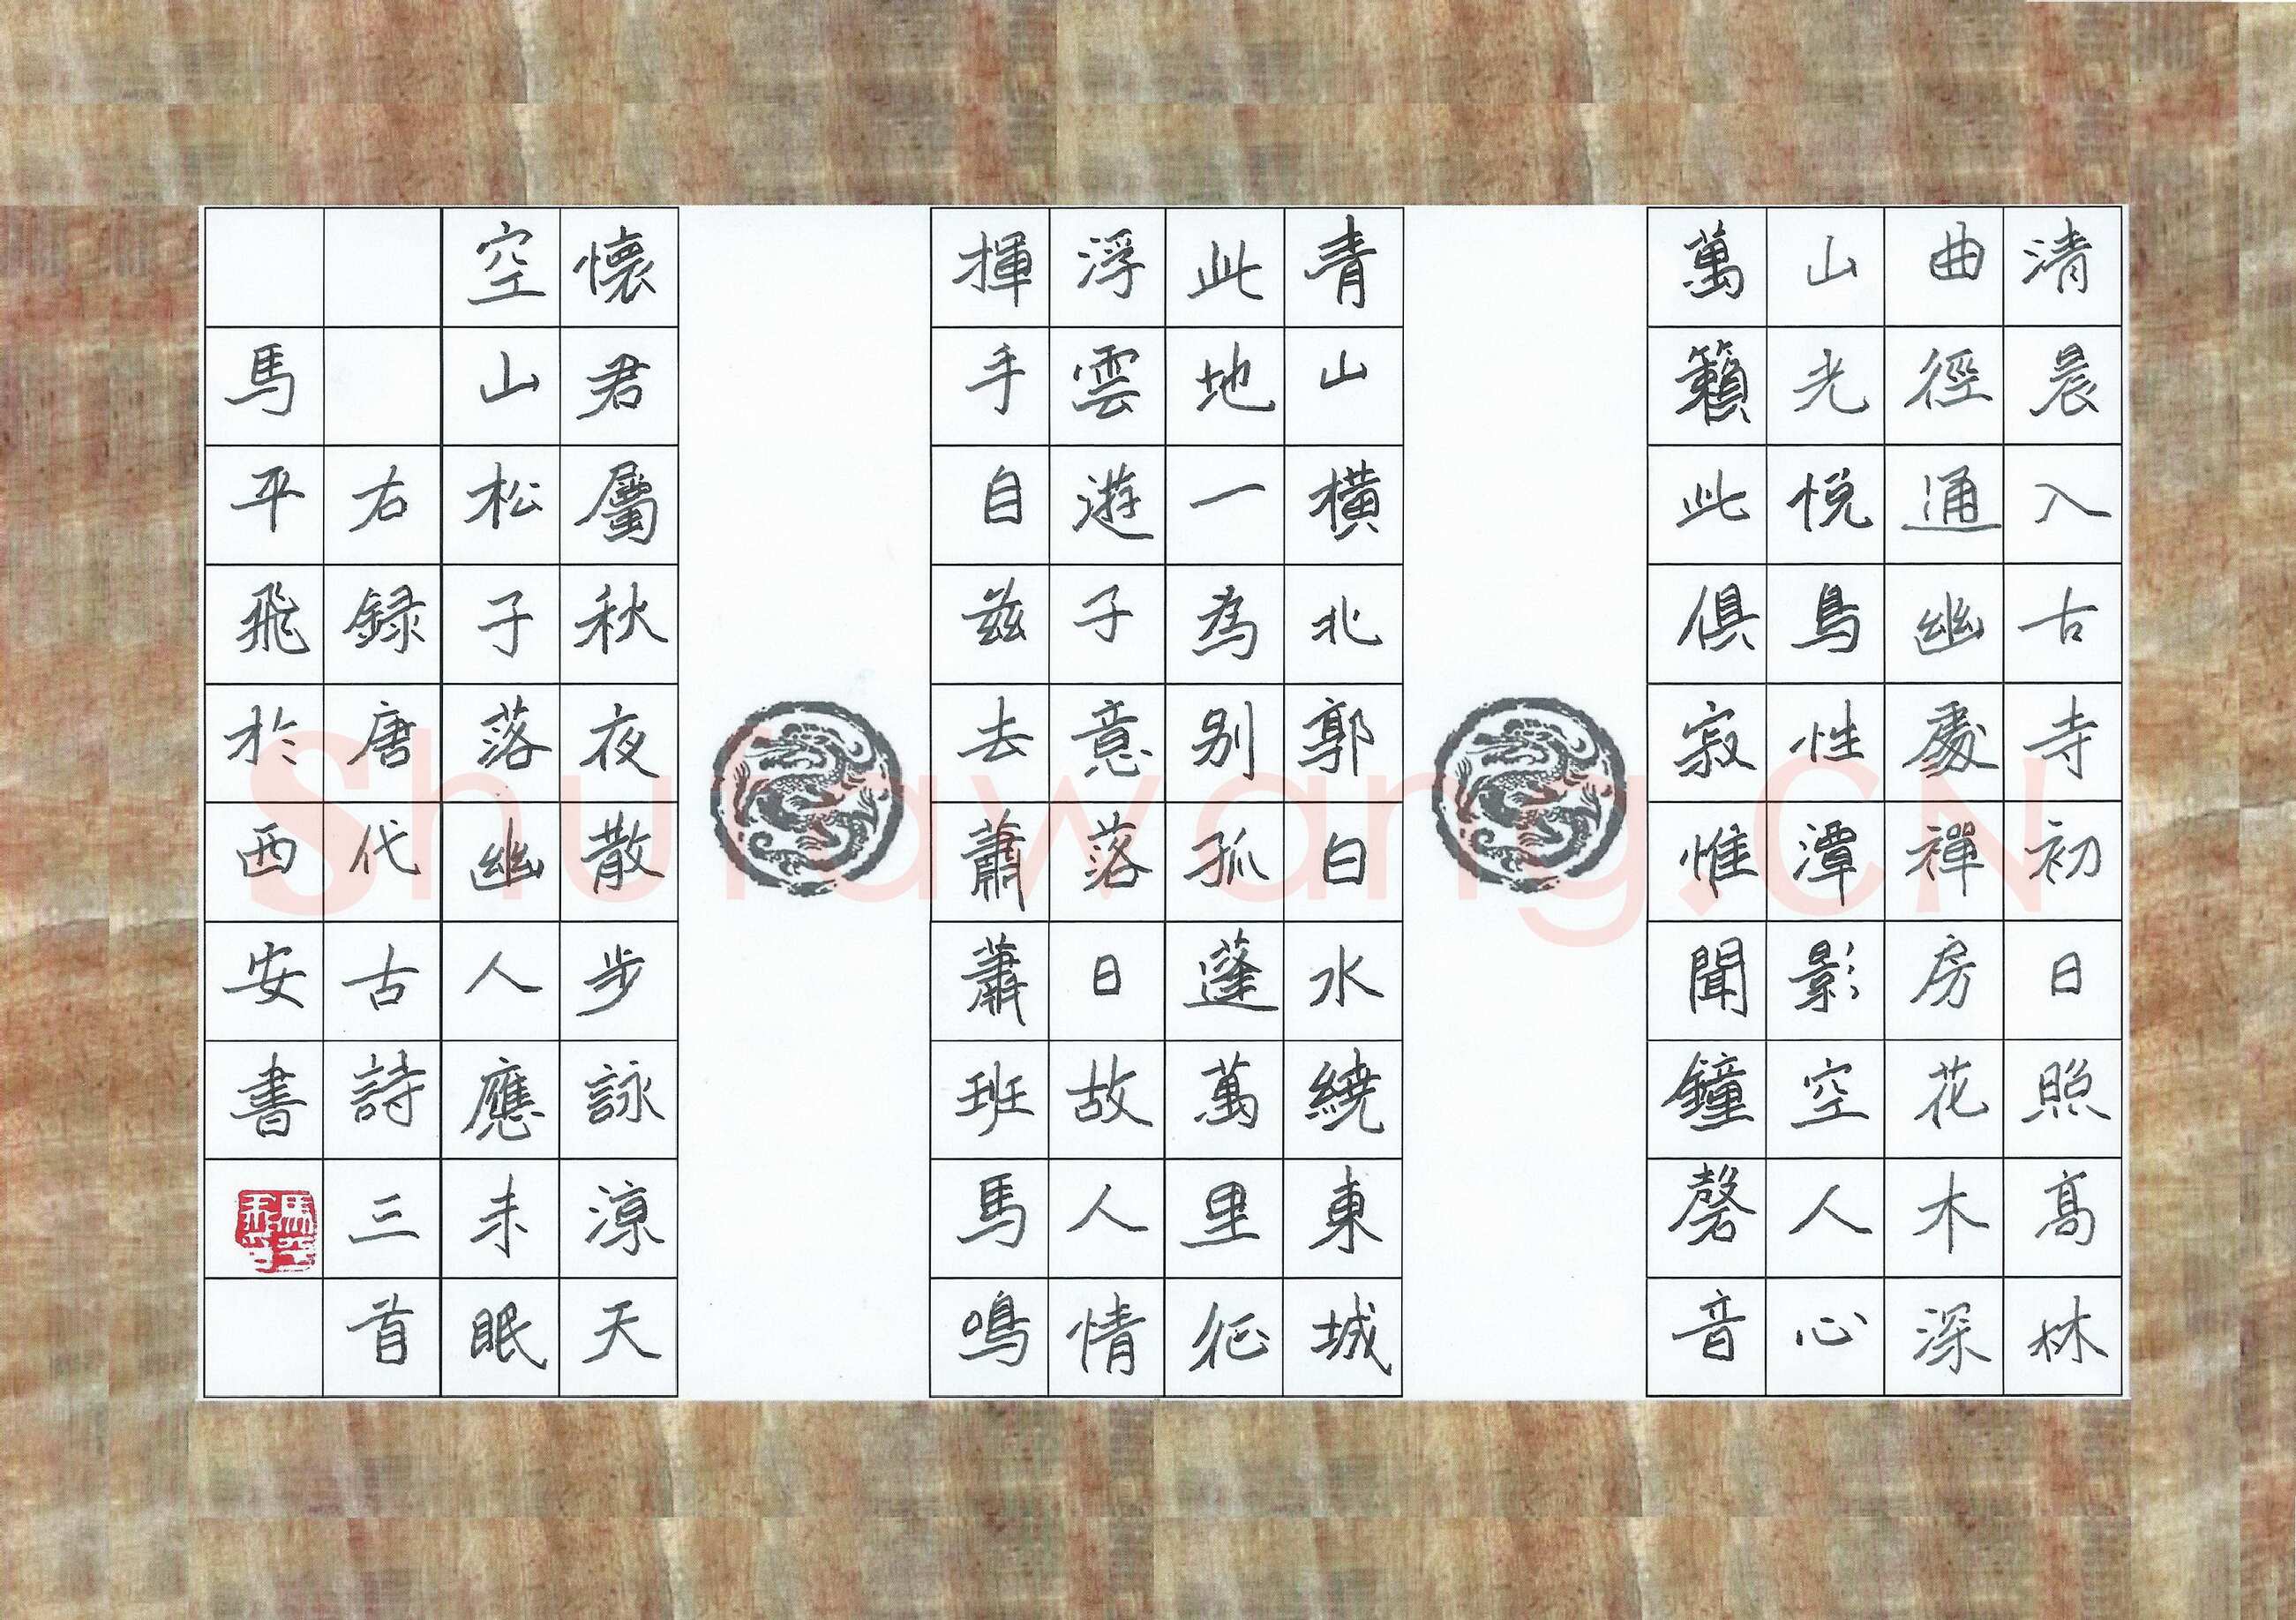 清晨入古寺初日照高林
曲徑通幽處禪房花木深
山光悅鳥性潭影空人心
萬籟此俱寂惟聞鐘磬音
青山橫北郭白水繞東城
此地一為别孤蓬萬里征
浮雲遊子意落日故人情
揮手自茲去蕭蕭班馬鳴
懷君屬秋夜散步詠涼天
空山松子落幽人應未眠
右録唐代古詩三首
馬平飛於西安書
Shufawang.CN